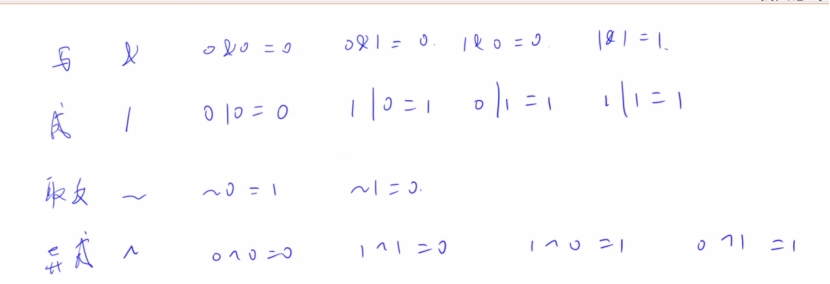 与 & 0&0=0 0&1=0. 1&0=0. 1&1=1.
或 | 0|0=0 1|0=1 0|1=1 1|1=1
取反 ~ ~0=1 ~1=0.
异或 ^ 0^0=0 1^1=0 1^0=1 0^1=1